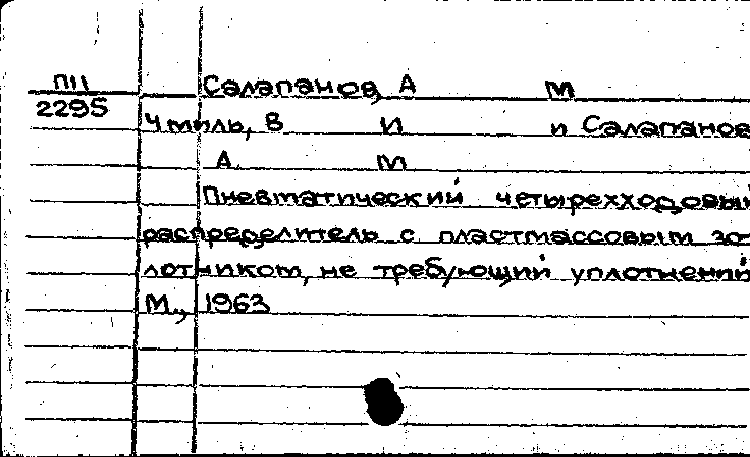 П11
2295
Салапанов, А М
Чмиль, В И и Салапанов
А М
Пневматический четырехходовый
распределитель с пластмассовым зо-
лотником, не требующий уплотнений
М., 1963